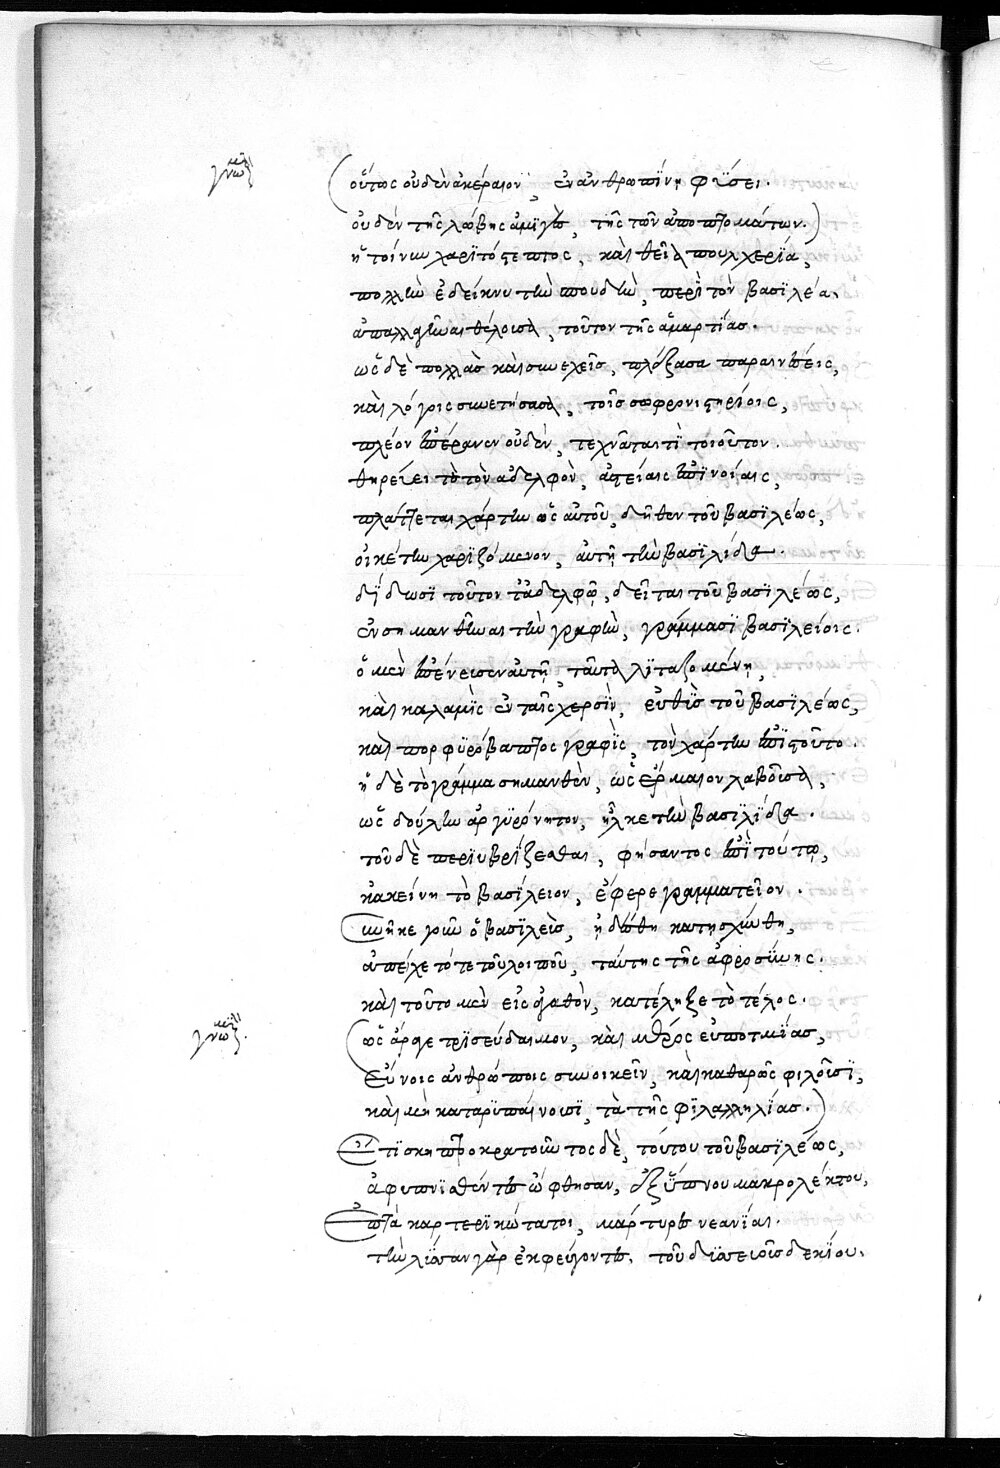 οὕτως οὐδὲν ἀκέραιον, ἐν ἀνθρωπίνῃ φύσει.
οὐδὲν τῆς λώβης ἀμιγὲς, τῆς τῶν ἀποπτομάτων.
ἡ τοίνυν χαριτόστεπτος, καὶ θεία πουλχερία,
πολλὴν ἐδείκνυ τὴν σπουδὴν, περὶ τὸν βασιλέα.
ἀπαλλαγῆναι θέλουσα, τοῦτον τῆς ἁμαρτίας.
ὡς δὲ πολλὰς καὶ συνεχεῖς, πλέξασα παραινέσεις,
καὶ λόγοις συνετήσασα, τοῖς σωφρονιστηρίοις,
πλέον ἐπέρανεν οὐδὲν, τεχνᾶται τὶ τοιοῦτον.
θηρεύει τὸ τὸν ἀδελφὸν, ἀστείαις ἐπινοίαις,
πλάττεται χάρτην ὡς αὐτοῦ, δῆθεν τοῦ βασιλέως,
οἰκέτην χαριζόμενον, αὐτῇ τὴν βασιλίδα.
δίδωσι τοῦτον τἀδελφῷ, δεῖται τοῦ βασιλέως,
ἐνσημανθῆναι τὴν γραφὴν, γράμμασι βασιλείοις.
ὁ μὲν ἐπένευσεν αὐτῇ, ταῦτα λιταζομένη,
καὶ καλαμὶς ἐν ταῖς χερσὶν, εὐθὺς τοῦ βασιλέως,
καὶ πορφυρόβαπτος γραφὶς, τὸν χάρτην ἐπιστοῦτο.
ἡ δὲ τὸ γράμμα σημανθὲν, ὡς ἕρμαιον λαβοῦσα,
ὡς δούλην ἀργυρόνητον, ἧλκε τὴν βασιλίδα.
τοῦ δὲ περιυβρίζεσθαι, φήσαντος ἐπὶ τούτῳ,
κἀκείνη τὸ βασίλειον, ἔφερε γραμματεῖον.
συνῆκε γοῦν ὁ βασιλεὺς, ἠδέσθη κατησχύνθη,
ἀπείχετό τε τοῦ λοιποῦ, ταύτης τῆς ἀφροσύνης.
καὶ τοῦτο μὲν εἰς ἀγαθὸν, κατέληξε τὸ τέλος.
ὡς ἄρά γε τρισεύδαιμον, καὶ μέρος εὐποτμίας,
εὔνοις ἀνθρώποις συνοικεῖν, καὶ καθαρῶς φιλοῦσι,
καὶ μὴ καταρυπαίνουσι, τὰ τῆς φιλαλληλίας.
Ἔτι σκηπτροκρατοῦντος δὲ, τούτου τοῦ βασιλέως,
ἀφυπνισθέντες ὤφθησαν, ἐξ ὕπνου μακρολέκτου,
Ἑπτὰ καρτερικώτατοι, μάρτυρες νεανίαι.
τὴν λύσσαν γὰρ ἐκφεύγοντες, τοῦ δυσσεβοῦς δεκίου.